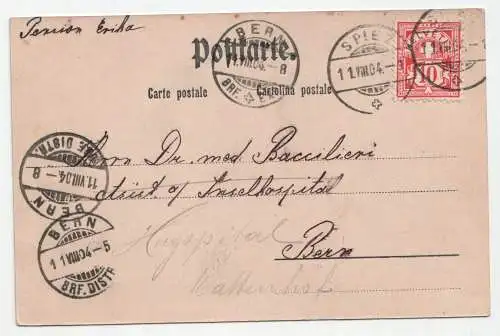 Pension Erika
Postkarte.
Carte postale Cartolina postale
BERN
11.VIII.04.-8
BRF. EXP.
SPIEZ
11.VIII.04.-5
11.VIII.04.-
10
Herrn Dr. med Baccilieri
Assist. of Inselhospital
Bern
BERN
11.VIII.04-8
BRF. DISTR.
BERN
11.VIII.04-5
BRF. DISTR.